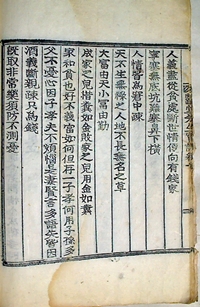 人義盡從貧處斷世情便向有錢家
寧塞無底坑難塞鼻下橫
人情皆爲窘中疎
天不生無祿之人地不長無名之草
大富由天小富由勤
成家之兒惜糞如金敗家之兒用金如糞
家和貧也好不義富如何但存一子孝何用子孫多
父不憂心因子孝夫不煩惱是妻賢言多語失皆因
酒義斷親疎只爲錢
既取非常樂須防不測憂